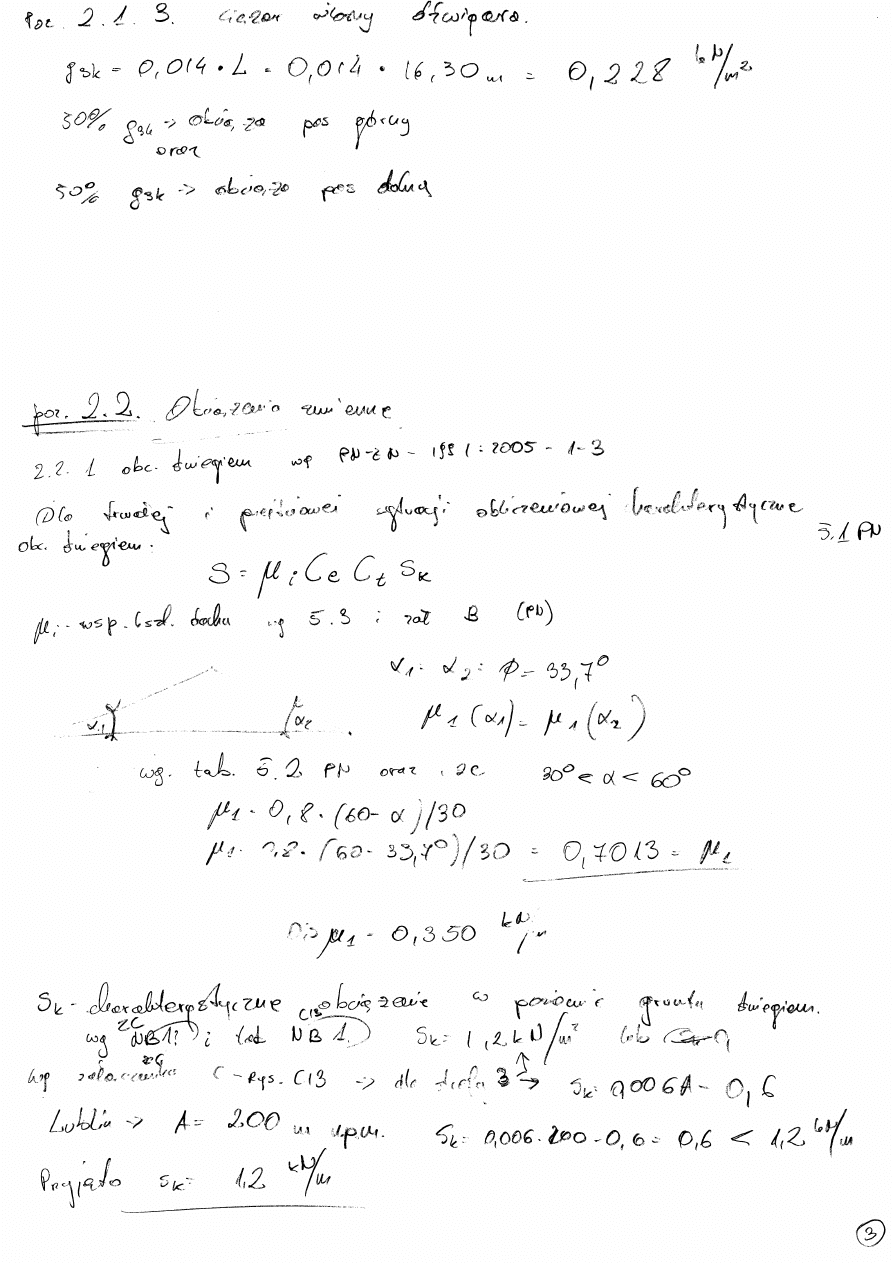 Poz. 2.1.3. Ciężar własny dźwigara.
gsk = 0,014 • L = 0,014 • 16,30 m = 0,228 kN/m²
50% gsk -> obciąża pas górny
oraz
50% gsk -> obciąża pas dolny
poz. 2.2. Obciążenia zmienne
2.2.1 obc. śniegiem wg PN-EN-1991:2005-1-3
Dla trwałej i przejściowej sytuacji obliczeniowej charakterystyczne
5.1 PN
obc. śniegiem:
S = μi Ce Ct Sk
μi - wsp. kszt. dachu wg 5.3 i zał B (PN)
α1 = α2 = φ = 33,7°
μ1(α1) = μ1(α2)
α1 α2
wg. tab. 5.2 PN oraz 30° < α < 60°
μ1 = 0,8 • (60 - α)/30
μ1 = 0,8 • (60 - 33,7°)/30 = 0,7013 = μ1
0,5 μ1 = 0,350 kN/m
Sk - charakterystyczne obciążenie w poziomie gruntu śniegiem.
wg NB1 i tab NB1. Sk = 1,2 kN/m² lub
wg załącznika C - rys. C13 -> dla strefy 3 -> Sk = 0,006A - 0,6
Lublin -> A = 200 m n.p.m. Sk = 0,006•200 - 0,6 = 0,6 < 1,2 kN/m
Przyjęto Sk = 1,2 kN/m
3